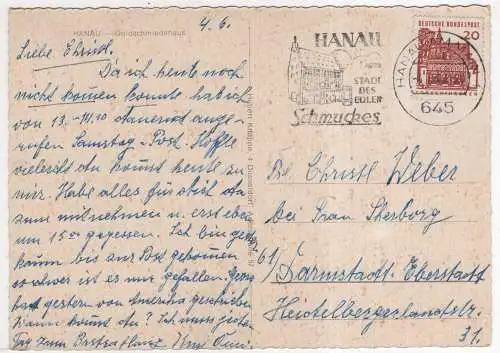 HANAU Goldschmiedehaus
4.6.
Liebe Christl.
Da ich heute noch
nicht kommen konnte hab ich
von 13.-14.10 dauernd ange-
rufen Samstag-Post. Hoffe
vielleicht du kommst heute zu
mir. Habe alles für dich da
zum mitnehmen u. erst eben
um 15 gegessen. Ich bin
kaum bis zur Post gekommen
so schwer ist es mir gefallen.
hat gestern von Amerika geschrieben
Wann kommst du? Ich muss jeden
Tag zum
HANAU
STADT
DES
EDLEN
Schmuckes
DEUTSCHE BUNDESPOST
20
HANAU
645
Frl. Christl Weber
bei Frau Sterborg
61 Darmstadt Eberstadt
Heidelbergerlandstr.
31